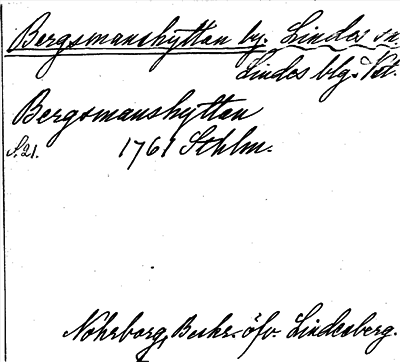 Bergsmanshyttan by. Lindes sn.
Lindes blg. Vst.
Bergsmanshyttan
S. 21. 1761 Sthlm.
Nohrborg, Beskr. öfv. Lindesberg.